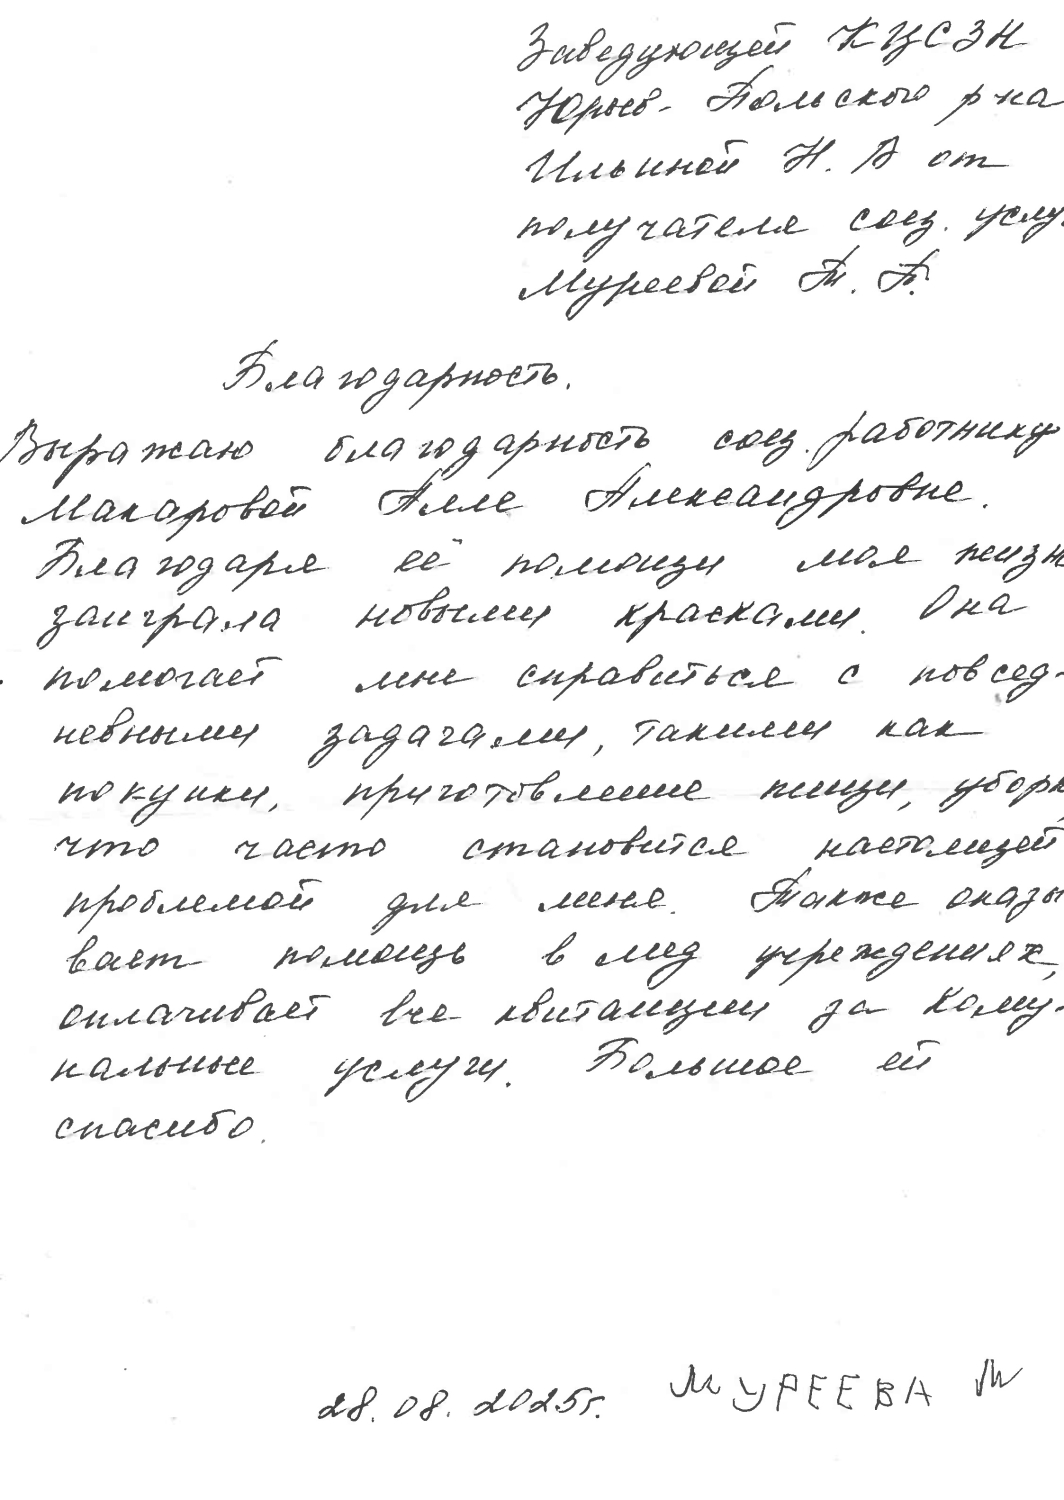 Заведующей КЦСЗН
Юрьев-Польского р-на
Ильиной Н. А от
получателя соц. услу
Муреевой Т. Б.
Благодарность.
Выражаю благодарность соц. работнику
Макаровой Алле Александровне.
Благодаря её помощи моя жизн
заиграла новыми красками. Она
помогает мне справиться с повсед-
невными задачами, такими как
покупки, приготовление пищи, уборк
что часто становится настоящей
проблемой для меня. Также оказы
вает помощь в мед учреждениях,
оплачивает все квитанции за кому-
нальные услуги. Большое ей
спасибо.
28.08.2025г. МУРЕЕВА